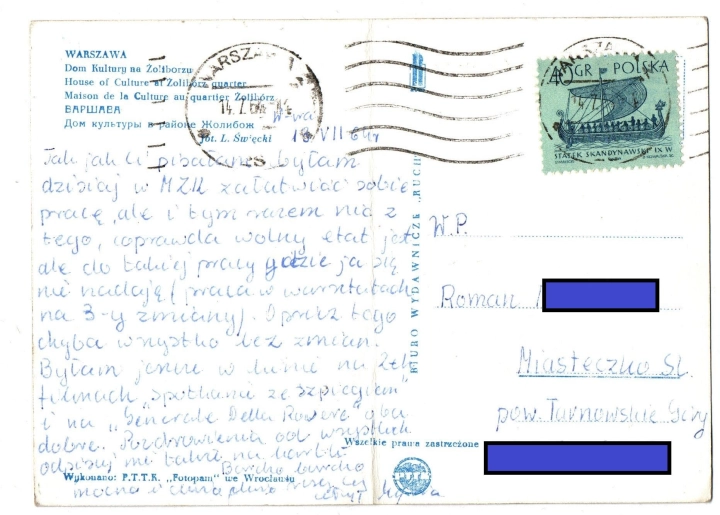 WARSZAWA
Dom Kultury na Żoliborzu
House of Culture at Żoliborz quarter
Maison de la Culture au quartier Żoliborz
ВАРШАВА
Дом культуры в районе Жолибож
fot. L. Święcki
WARSZAWA
14.7.64
40 GR POLSKA
STATEK SKANDYNAWSKI IX W
W-wa
13 VII 64r
Tak jak Ci pisałam byłam
dzisiaj w MZK załatwiać sobie
pracę, ale i tym razem nic z
tego, coprawda wolny etat jest
ale do takiej pracy gdzie ja się
nie nadaję (praca w warsztatach
na 3-y zmiany). Oprócz tego
chyba wszystko bez zmian.
Byłam jeszcze w kinie na 2ch
filmach "spotkanie ze szpiegiem"
i na "Generale Della Rovere" oba
dobre. Pozdrowienia od wszystkich
odpisuj mi także na kartki
Bardzo bardzo
mocno i
BIURO WYDAWNICZE „RUCH"
W.P.
Roman
Miasteczko Śl.
pow. Tarnowskie Góry
Wszelkie prawa zastrzeżone
Wykonano: P.T.T.K. „Fotopam" we Wrocławiu